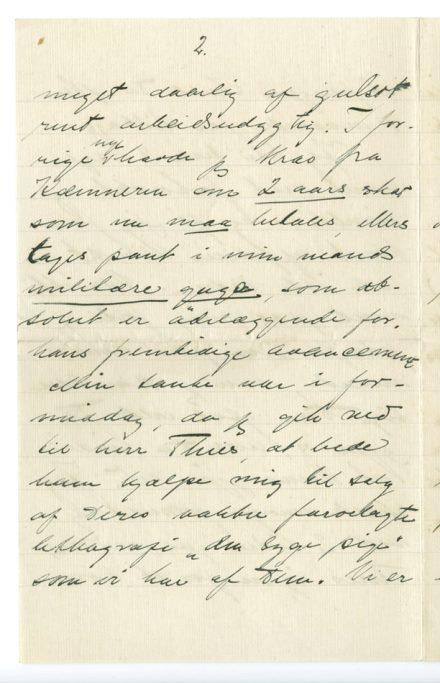 2.
meget daarlig af gulsot
rent arbeidsudygtig. I for-
rige my havde jeg Krav fra
Kæmneren om 2 aars skat
som nu maa betales, ellers
tages pant i min mands
militære gage, som ab-
solut er ødelæggende for
hans fremtidige avancement
Min tanke var i for-
middag, da jeg gik ned
til herr Thiis, at bede
ham hjælpe mig til salg
af Deres vakkre farvelagte
lithografi "den syge pige"
som vi har af Dem. Vi er